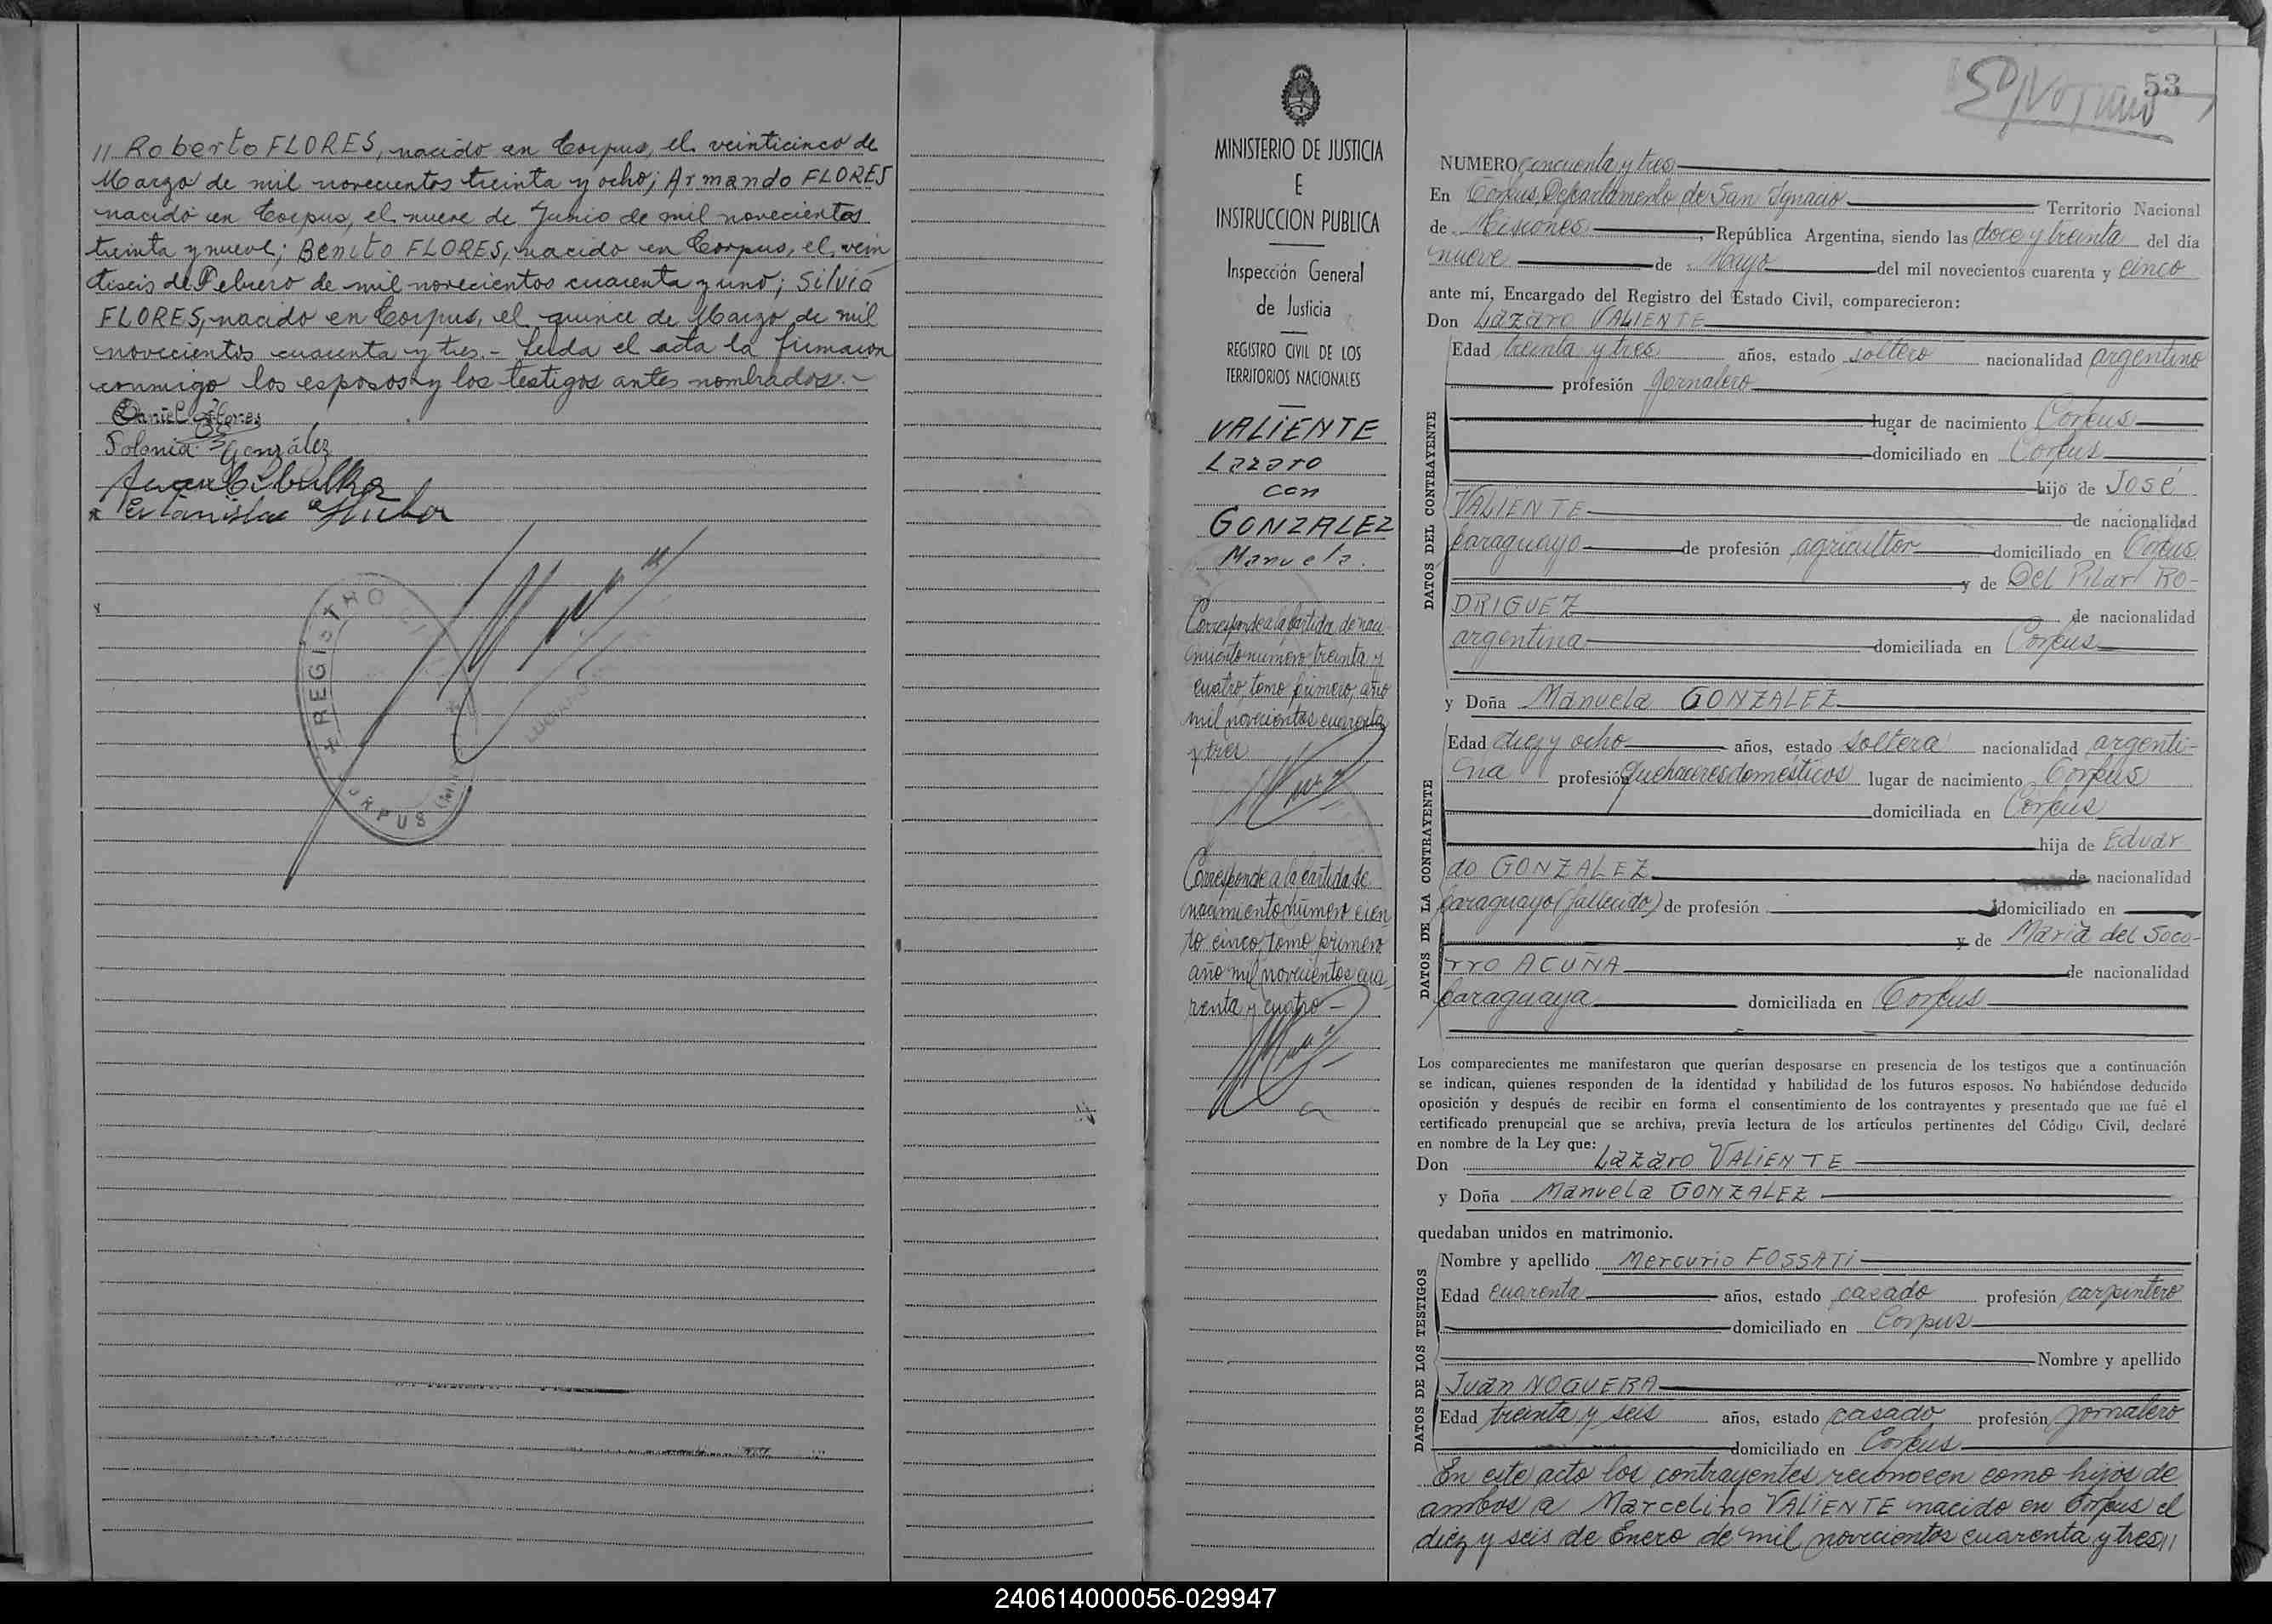 // Roberto FLORES, nacido en Corpus, el veinticinco de
Marzo de mil novecientos treinta y ocho; Armando FLORES
nacido en Corpus, el nueve de Junio de mil novecientos
treinta y nueve; Benito FLORES, nacido en Corpus, el vein
tiseis de Febrero de mil novecientos cuarenta y uno; Silvia
FLORES, nacido en Corpus, el quince de Marzo de mil
novecientos cuarenta y tres.- Leida el acta la firmaron
conmigo los esposos y los testigos antes nombrados.-
Daniel Flores
Polonia González
REGISTRO CIVIL
CORPUS (Mnes)
MINISTERIO DE JUSTICIA
E
INSTRUCCION PUBLICA
Inspección General
de Justicia
REGISTRO CIVIL DE LOS
TERRITORIOS NACIONALES
VALIENTE
Lazaro
con
GONZALEZ
Manuela.
Corresponde a la partida de naci-
miento numero treinta y
cuatro, tomo primero, año
mil novecientos cuarenta
y tres
Corresponde a la partida de
nacimiento número cien
to cinco, tomo primero
año mil novecientos cua-
renta y cuatro -
53
NUMERO cincuenta y tres
En Corpus, Departamento de San Ignacio Territorio Nacional
de Misiones, República Argentina, siendo las doce y treinta del día
nueve de Mayo del mil novecientos cuarenta y cinco
ante mí, Encargado del Registro del Estado Civil, comparecieron:
Don Lázaro VALIENTE
DATOS DEL CONTRAYENTE
Edad treinta y tres años, estado soltero nacionalidad argentino
profesión jornalero
lugar de nacimiento Corpus
domiciliado en Corpus
hijo de José
VALIENTE de nacionalidad
paraguayo de profesión agricultor domiciliado en Corpus
y de Del Pilar RO-
DRIGUEZ de nacionalidad
argentina domiciliada en Corpus
y Doña Manuela GONZALEZ
DATOS DE LA CONTRAYENTE
Edad diez y ocho años, estado soltera nacionalidad argenti-
na profesión quehaceres domésticos lugar de nacimiento Corpus
domiciliada en Corpus
hija de Eduar
do GONZALEZ de nacionalidad
paraguayo (fallecido) de profesión domiciliado en
y de Maria del Soco-
rro ACUÑA de nacionalidad
paraguaya domiciliada en Corpus
Los comparecientes me manifestaron que querían desposarse en presencia de los testigos que a continuación
se indican, quienes responden de la identidad y habilidad de los futuros esposos. No habiéndose deducido
oposición y después de recibir en forma el consentimiento de los contrayentes y presentado que me fué el
certificado prenupcial que se archiva, previa lectura de los artículos pertinentes del Código Civil, declaré
en nombre de la Ley que:
Don Lázaro VALIENTE
y Doña Manuela GONZALEZ
quedaban unidos en matrimonio.
DATOS DE LOS TESTIGOS
Nombre y apellido Mercurio FOSSATI
Edad cuarenta años, estado casado profesión carpintero
domiciliado en Corpus
Nombre y apellido
Juan NOGUERA
Edad treinta y seis años, estado casado profesión jornalero
domiciliado en Corpus
En este acto los contrayentes reconocen como hijos de
ambos a Marcelino VALIENTE nacido en Corpus el
diez y seis de Enero de mil novecientos cuarenta y tres//
240614000056-029947